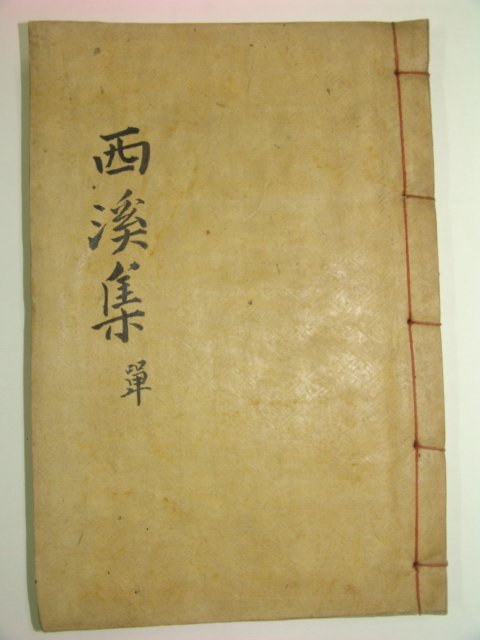 西溪集 單